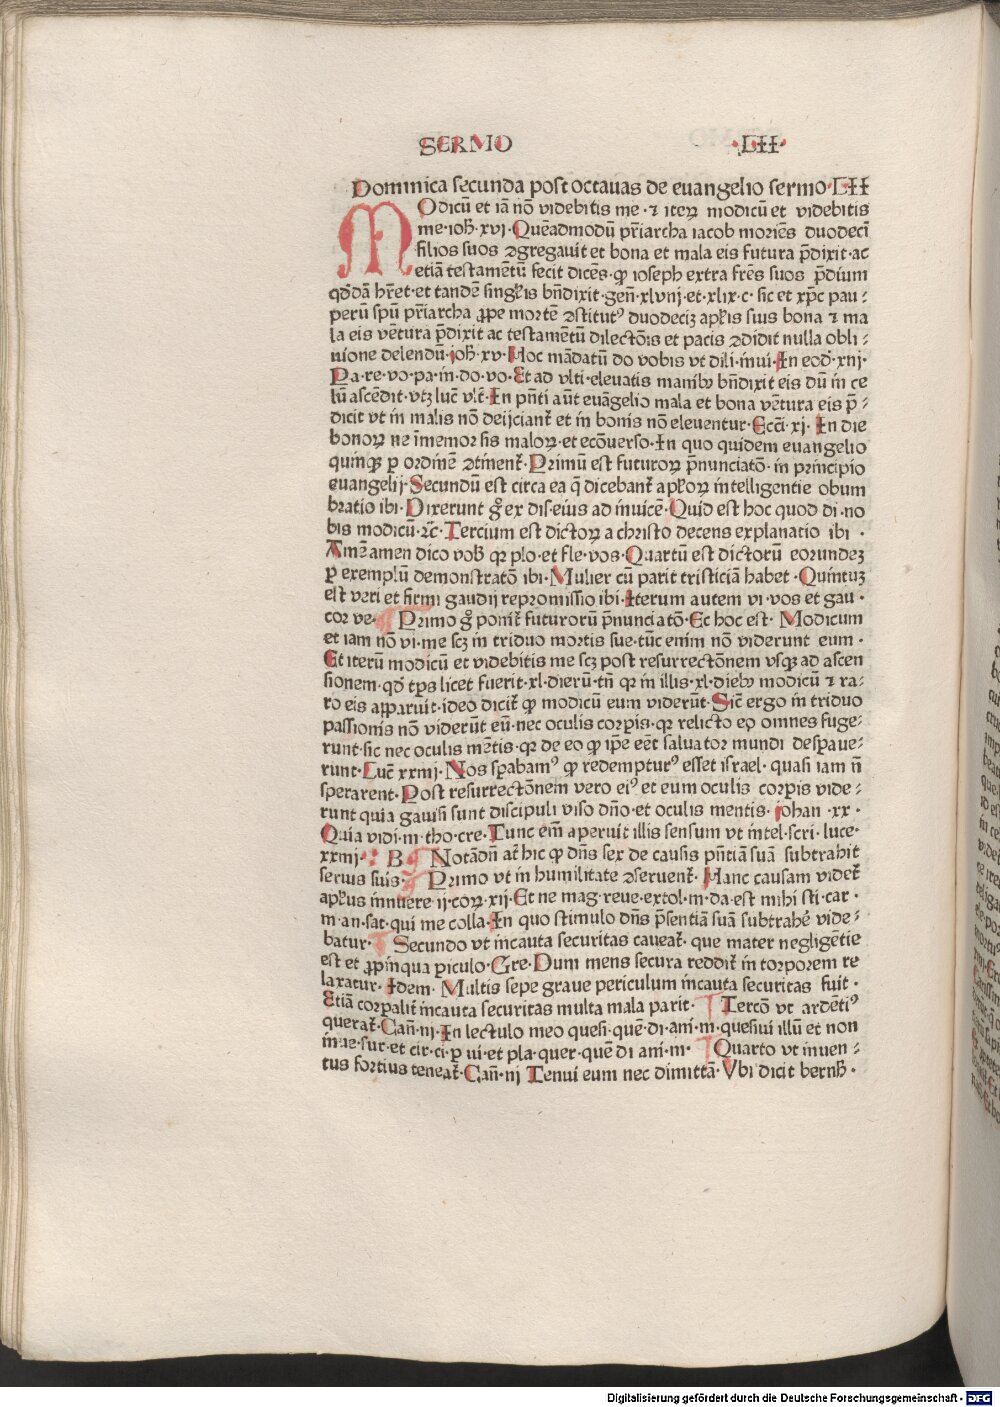 SERMO ·LII·
Dominica secunda post octauas de euangelio sermo·LII
MOdicū et iā nō videbitis me · ⁊ iteꝝ modicū et videbitis
me·ioh̄·xvi·Quēadmodū pr̄iarcha iacob moriēs duodecī
filios suos ꝯgregauit et bona et mala eis futura p̄dixit·ac
etiā testamētū fecit dicēs·ꝙ ioseph extra fr̄es suos p̄dium
qd̄dā hr̄et·et tandē singl̓is bn̄dixit·geñ·xlvnj·et·xlix·c· sic et xp̄c pau⸗
perū spū pr̄iarcha ꝓpe mortē ꝯstitutꝰ duodeciꝫ apl̓is suis bona ⁊ ma
la eis vētura p̄dixit ac testamētū dilectōis et pacis ꝯdidit nulla obli⸗
uione delendū·ioh̄·xv·Hoc mādatū do vobis vt dili·inui·In eod̄·xnj·
Pa·re·vo·pa·m·do·vo·Et ad vlti·eleuatis manibꝰ bn̄dixit eis dū in ce
lū ascēdit·vtꝫ luc̄ vlt̄·In pn̄ti aūt euāgelio mala et bona vētura eis p̄⸗
dicit vt in malis nō deijciant᷑ et in bonis nō eleuentur·Ecc̄i·xj·In die
bonoꝝ ne īmemor sis maloꝝ·et ecōuerso·In quo quidem euangelio
quinqꝫ ꝑ ordinē ꝯtinent᷑·Primū est futuroꝝ p̄nunciatō·in principio
euangelij·Secundū est circa ea q̄ dicebant᷑ apl̓oꝝ intelligentie obum
bratio ibi·Dixerunt g̊ ex dis·eius ad inuicē·Quid est hoc quod di·no
bis modicū·⁊c̄·Tercium est dictoꝝ a christo decens explanatio ibi·
Amē amen dico vob̄ qꝛ plo·et fle·vos·Quartū est dictorū eorundeꝫ
ꝑ exemplū demonstratō ibi·Mulier cū parit tristiciā habet·Quintuꝫ
est veri et firmi gaudij repromissio ibi·Iterum autem vi·vos et gau·
cor ve· Primo g̊ ponit᷑ futurorū p̄nunciatō·Ec hoc est· Modicum
et iam nō vi·me scꝫ in triduo mortis sue·tūc enim nō viderunt eum·
Et iterū modicū et videbitis me scꝫ post resurrectōnem vsqꝫ ad ascen
sionem·qd̄ tp̄s licet fuerit·xl·dierū·tn̄ qꝛ in illis·xl·diebꝰ modicū ⁊ ra⸗
ro eis apparuit·ideo dicit᷑ ꝙ modicū eum viderūt·Sic̄ ergo in triduo
passionis nō viderūt eū·nec oculis corꝑis·qꝛ relicto eo omnes fuge⸗
runt·sic nec oculis mētis·qꝛ de eo ꝙ ip̄e eēt saluator mundi despaue⸗
runt·Luc̄ xxnij·Nos sꝑabamꝰ ꝙ redempturꝰ esset israel·quasi iam n̄
sperarent·Post resurrectōnem vero eiꝰ et eum oculis corꝑis vide⸗
runt quia gauisi sunt discipuli viso dn̄o·et oculis mentis·iohan·xx·
Quia vidi·m·tho·cre·Tunc em̄ aperuit illis sensum vt intel·scri·luce·
xxnij· B Notādn̄ at᷑ hic ꝙ dn̄s sex de causis pn̄tiā suā subtrahit
seruis suis· Primo vt in humilitate ꝯseruent᷑·Hanc causam videt᷑
apl̓us innuere ij·coꝝ·xij·Et ne mag·reue·extol·m·da·est mihi sti·car·
m·an·sat·qui me colla·In quo stimulo dn̄s p̄sentiā suā subtrahē vide⸗
batur· Secundo vt incauta securitas caueat᷑·que mater negligētie
est et ꝓpinqua ꝑiculo·Gre·Dum mens secura reddit᷑ in torporem re
laxatur·Idem· Multis sepe graue periculum incauta securitas fuit·
Etiā corꝑalit᷑ incauta securitas multa mala parit· Tercō vt ardētiꝰ
querat᷑·Cañ·nj·In lectulo meo quesi·quē·di·ani·m·quesiui illū et non
in·ue·sur·et cir·ci·ꝑ ui·et pla·quer·quē di ani·m· Quarto vt inuen⸗
tus fortius teneat᷑·Cañ·nj Tenui eum nec dimittā·Vbi dicit bernh̄·
Digitalisierung gefördert durch die Deutsche Forschungsgemeinschaft - DFG